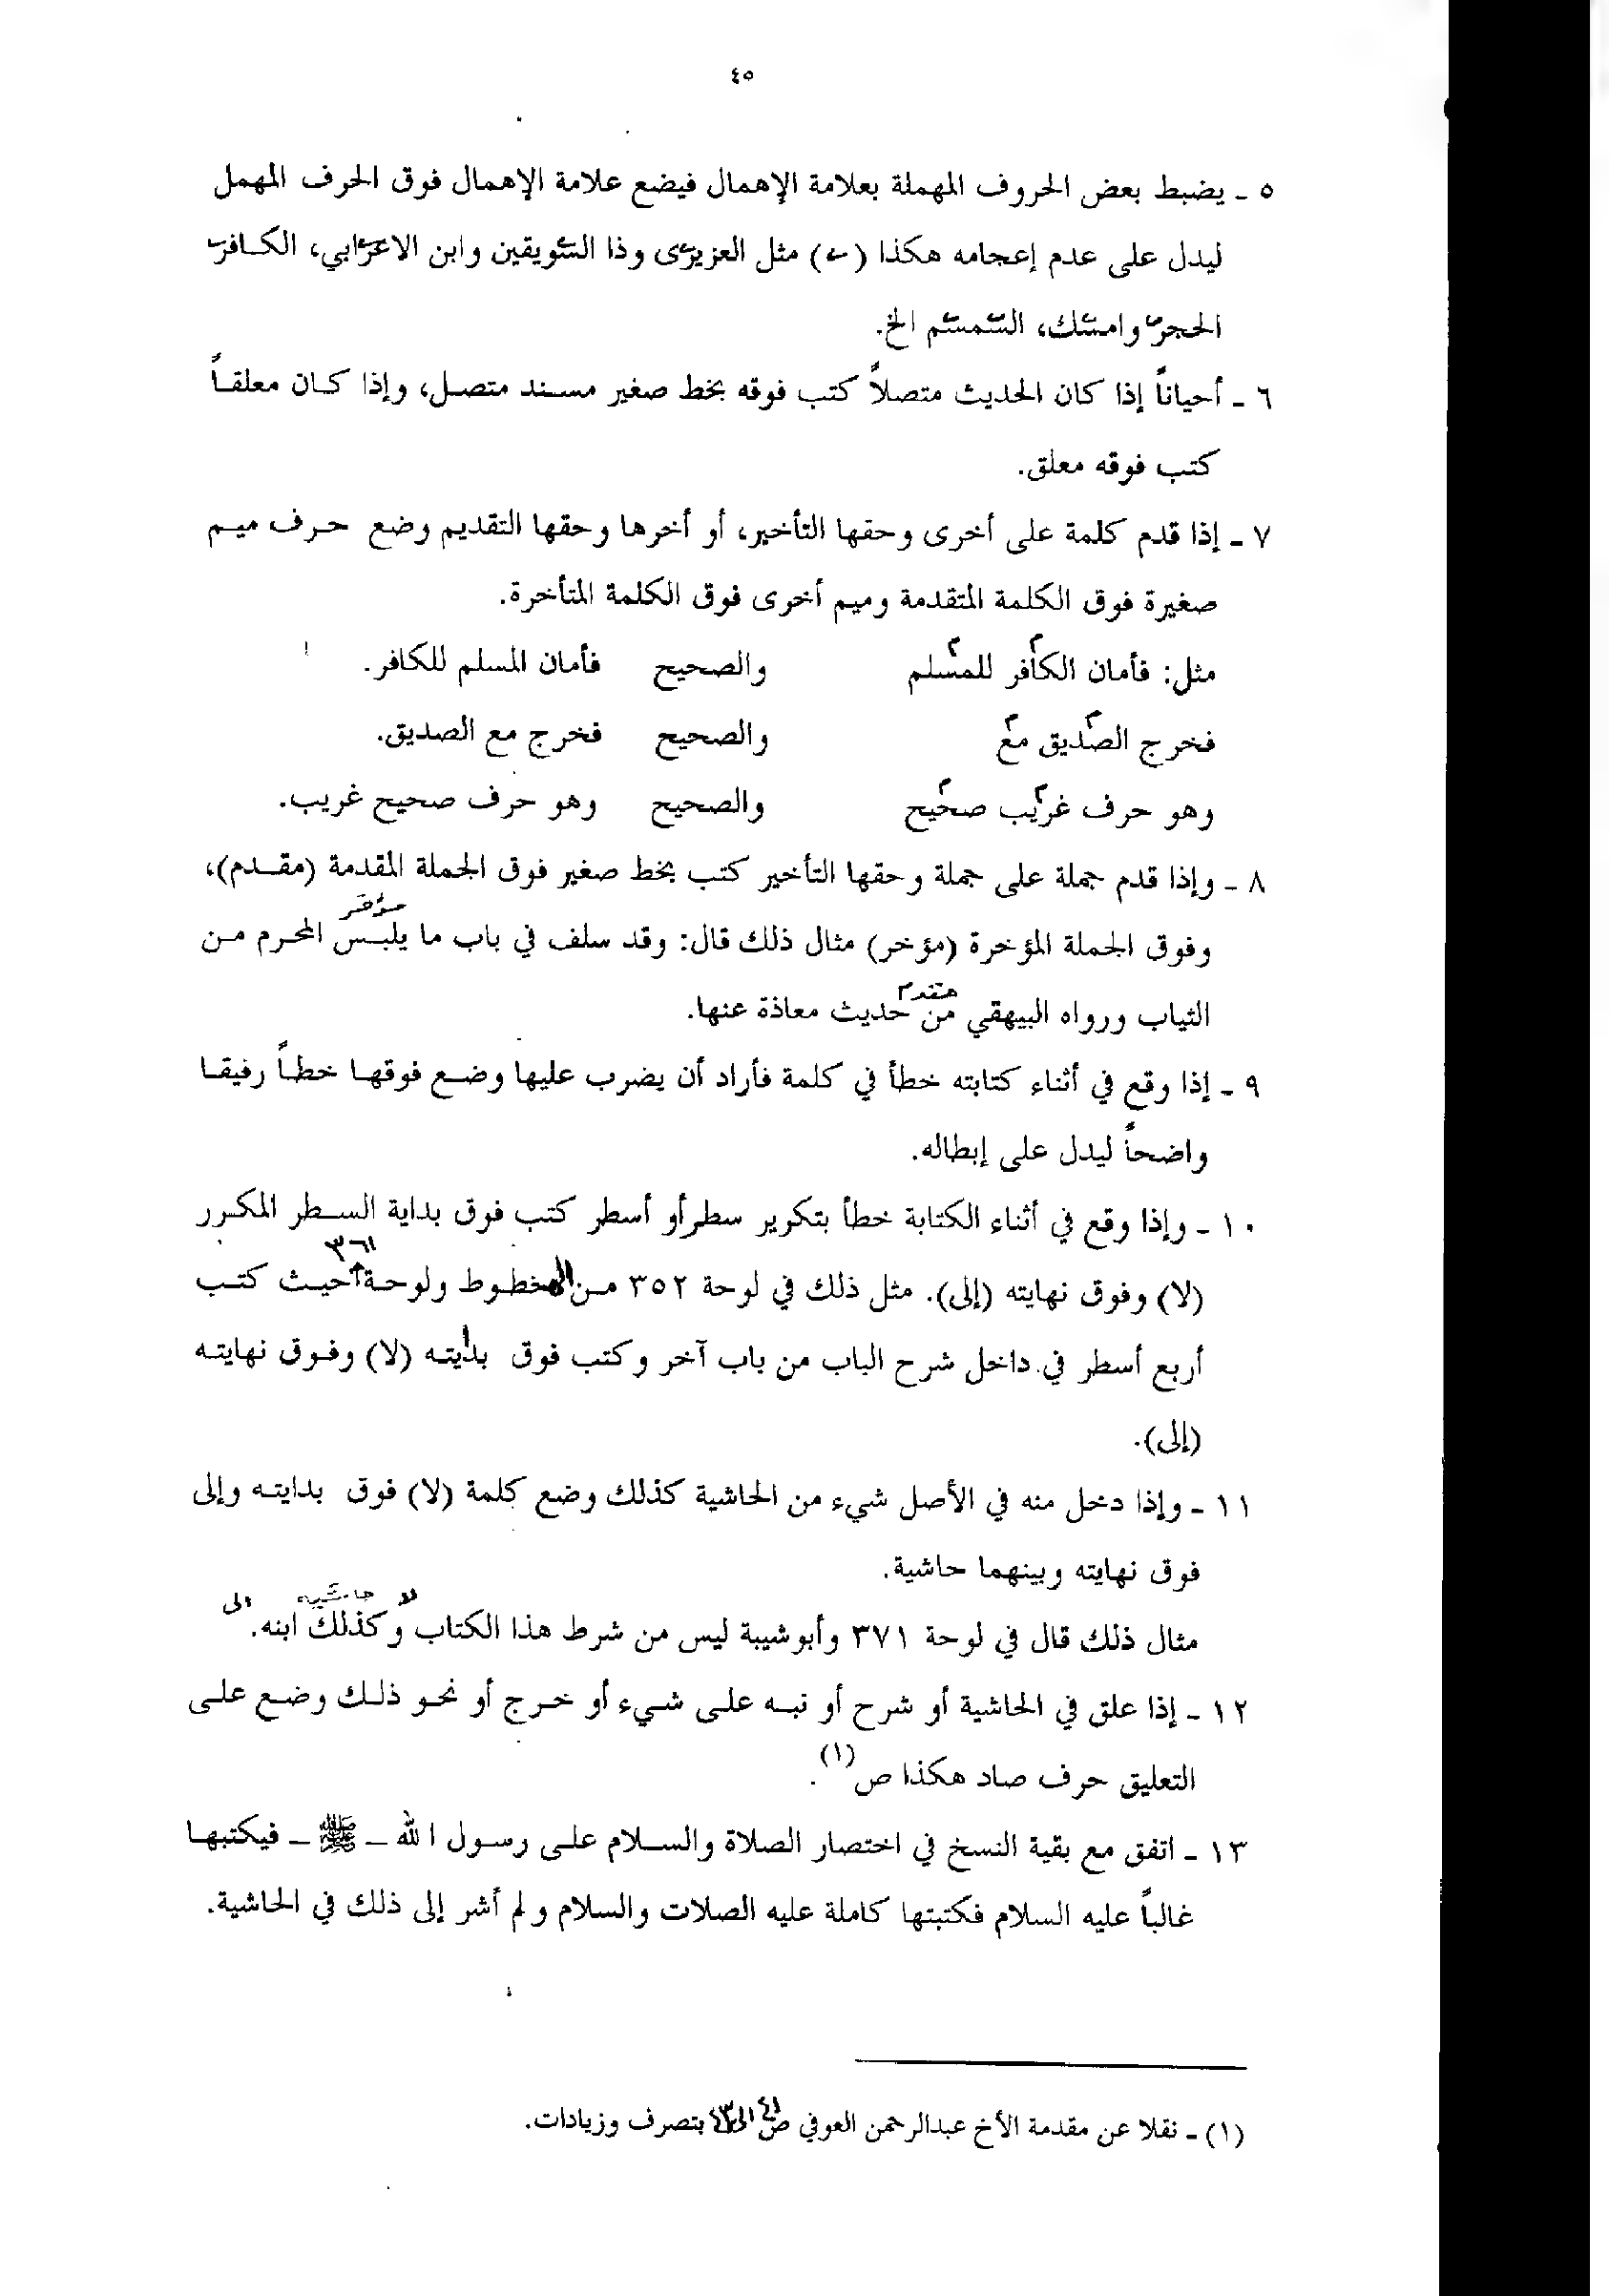 ٤٥
٥ ـ يضبط بعض الحروف المهملة بعلامة الإهمال فيضع علامة الإهمال فوق الحرف المهمل
ليدل على عدم إعجامه هكذا (ـ) مثل العزيزى وذا السويقين وابن الاعرابي، الكافر
الحجر وامسك، السمسم الخ.
٦ ـ أحياناً إذا كان الحديث متصلاً كتب فوقه بخط صغير مسند متصل، وإذا كان معلقاً
كتب فوقه معلق.
٧ ـ إذا قدم كلمة على أخرى وحقها التأخير، أو أخرها وحقها التقديم وضع حرف ميم
صغيرة فوق الكلمة المتقدمة وميم أخرى فوق الكلمة المتأخرة.
مثل: فأمان الكافر للمسلم والصحيح فأمان المسلم للكافر.
فخرج الصديق مع والصحيح فخرج مع الصديق.
وهو حرف غريب صحيح والصحيح وهو حرف صحيح غريب.
٨ ـ وإذا قدم جملة على جملة وحقها التأخير كتب بخط صغير فوق الجملة المقدمة (مقدم)،
مؤخر
وفوق الجملة المؤخرة (مؤخر) مثال ذلك قال: وقد سلف في باب ما يلبس المحرم من
مقدم
الثياب ورواه البيهقي من حديث معاذة عنها.
٩ ـ إذا وقع في أثناء كتابته خطأ في كلمة فأراد أن يضرب عليها وضع فوقها خطاً رفيقا
واضحاً ليدل على إبطاله.
١٠ ـ وإذا وقع في أثناء الكتابة خطأ بتكرير سطر أو أسطر كتب فوق بداية السطر المكرر
٣٦١
(لا) وفوق نهايته (إلى). مثل ذلك في لوحة ٣٥٢ من المخطوط ولوحة حيث كتب
أربع أسطر في داخل شرح الباب من باب آخر وكتب فوق بدايته (لا) وفوق نهايته
(إلى).
١١ ـ وإذا دخل منه في الأصل شيء من الحاشية كذلك وضع كلمة (لا) فوق بدايته وإلى
فوق نهايته وبينهما حاشية.
لا حاشيه الى
مثال ذلك قال في لوحة ٣٧١ وأبو شيبة ليس من شرط هذا الكتاب وكذلك ابنه.
١٢ ـ إذا علق في الحاشية أو شرح أو نبه على شيء أو خرج أو نحو ذلك وضع على
التعليق حرف صاد هكذا ص(١).
١٣ ـ اتفق مع بقية النسخ في اختصار الصلاة والسلام على رسول الله ـ ﷺ ـ فيكتبها
غالباً عليه السلام فكتبتها كاملة عليه الصلات والسلام ولم أشر إلى ذلك في الحاشية.
(١) ـ نقلا عن مقدمة الأخ عبدالرحمن العوفي ص ٤١ الى ٤٣ بتصرف وزيادات.